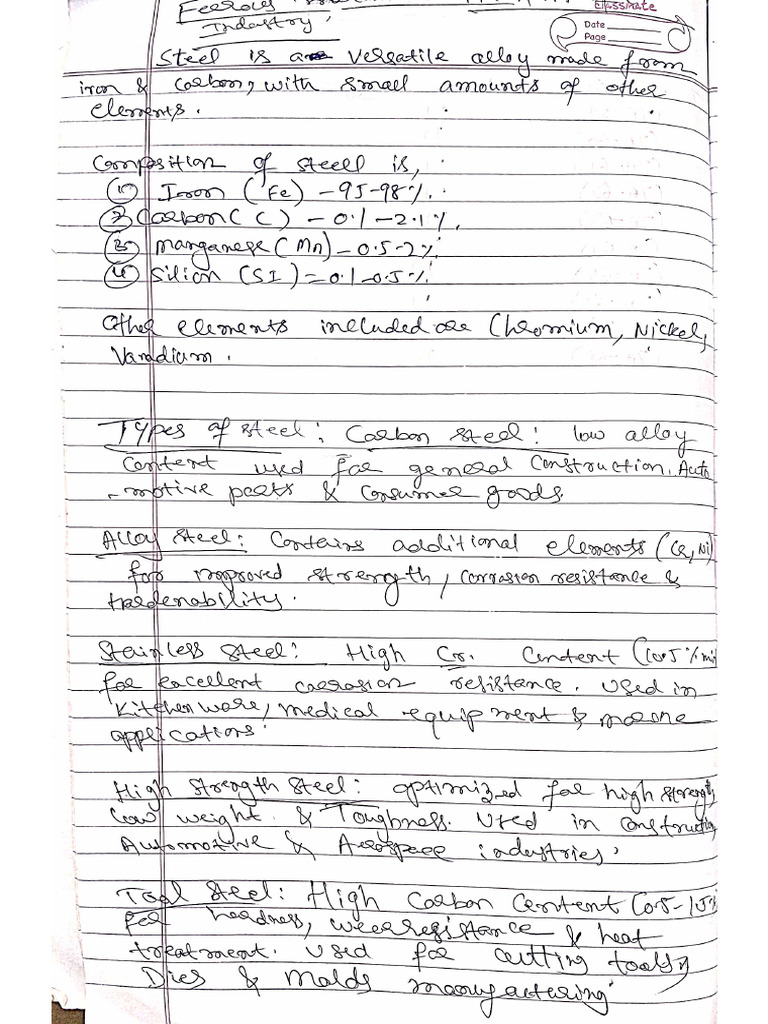 Ferrous
Industry,
classmate
Date
Page
Steel is a versatile alloy made from
iron & carbon, with small amounts of other
elements.
Composition of steell is,
① Iron (Fe) - 95-98%.
② Carbon (C) - 0.1 - 2.1%.
③ Manganese (Mn) - 0.5-2%.
④ Silion (SI) = 0.1-0.5%.
Other elements included are Chromium, Nickel,
Vanadium.
Types of steel: Carbon steel: low alloy
content used for general construction, Auto
-motive parts & consumer goods.
Alloy steel: Contains additional elements (Cr, Ni)
for improved strength, corrosion resistance &
hardenability.
Stainless steel: High Cr. content (10.5% mi
for excellent corrosion resistance. Used in
kitchenware, medical equipment & marine
applications.
High strength steel: optimized for high strength,
low weight & Toughness. Used in construction,
Automotive & Aerospace industries,
Tool steel: High Carbon Content (0.5-1.5%
for hardness, wear resistance & heat
treatment. Used for cutting tools,
Dies & Molds manufacturing.